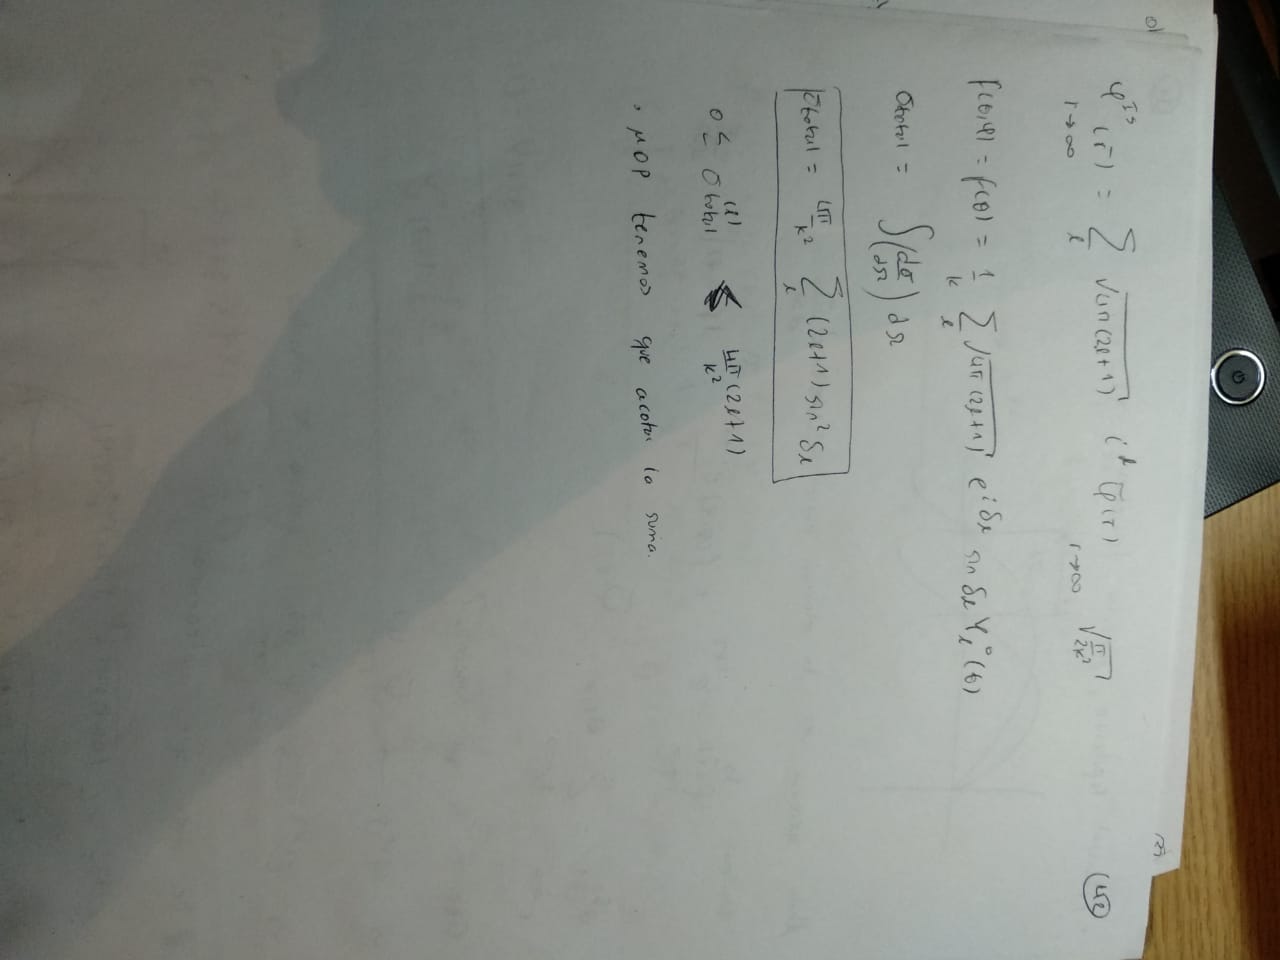 42
φ^{IS}(r̄) = Σ_l √(4π(2l+1)) i^l r→∞ √(π/2k²)
r→∞
f(θ,φ) = f(θ) = 1/k Σ_l √(4π(2l+1)) e^{iδ_l} sin δ_l Y_l^0(θ)
σtotal = ∫(dσ/dΩ) dΩ
σtotal = 4π/k² Σ_l (2l+1) sin² δ_l
0 ≤ σtotal^{(l)} ≤ 4π/k² (2l+1)
tenemos que acotar la suma.